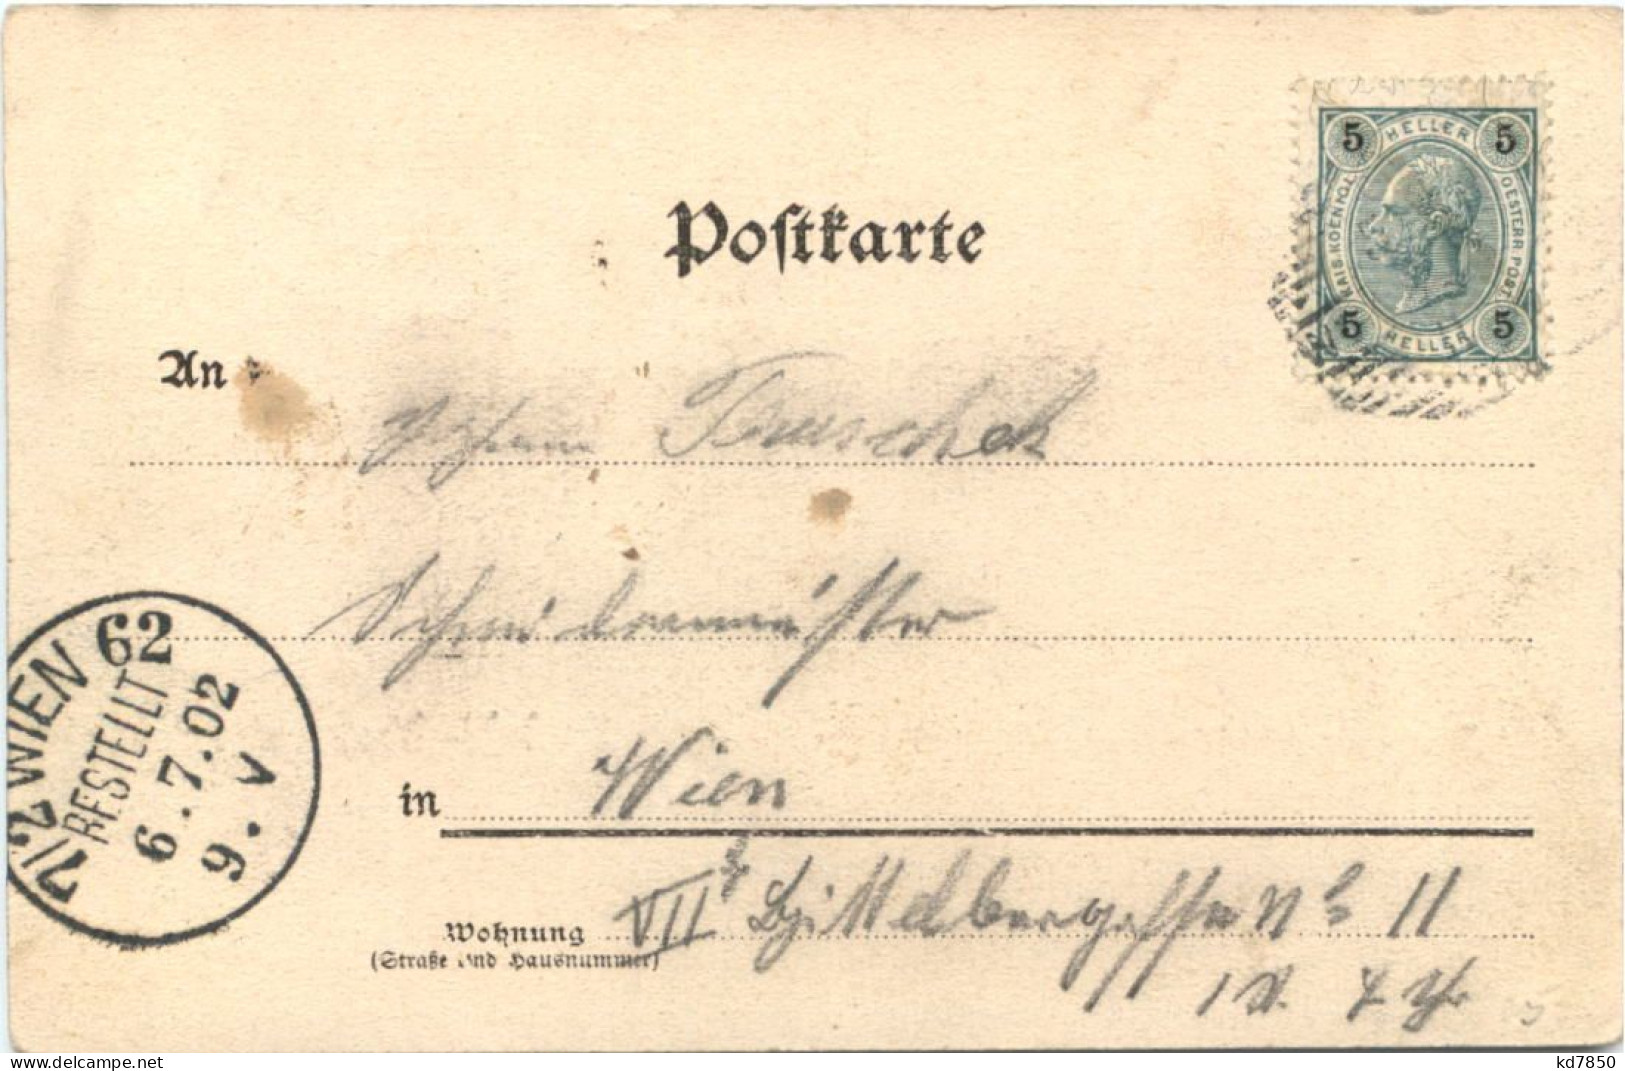 Postkarte
5 HELLER 5
KAIS. KOENIGL. OESTERR. POST.
5 HELLER 5
An
Herrn
Schneidermeister
7/2 WIEN 62
BESTELLT
6.7.02
9.V
in Wien
VII Nº 11
Wohnung
(Straße und Hausnummer)
delcampe.net
kd7850